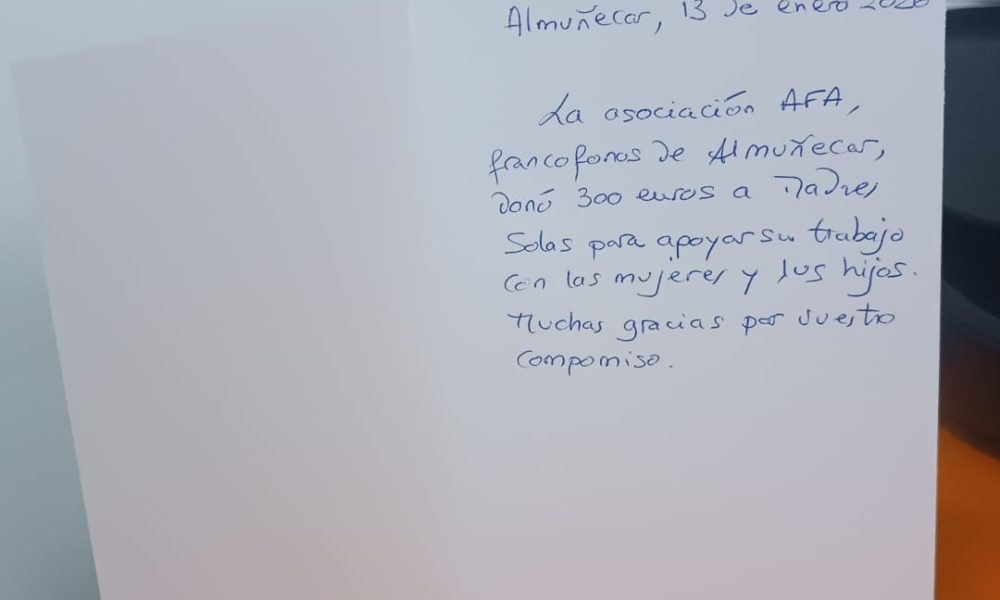 Almuñecar, 13 de enero
La asociación AFA,
francofonos de Almuñecar,
donó 300 euros a Madres
Solas para apoyar su trabajo
con las mujeres y los hijos.
Muchas gracias por vuestro
compomiso.